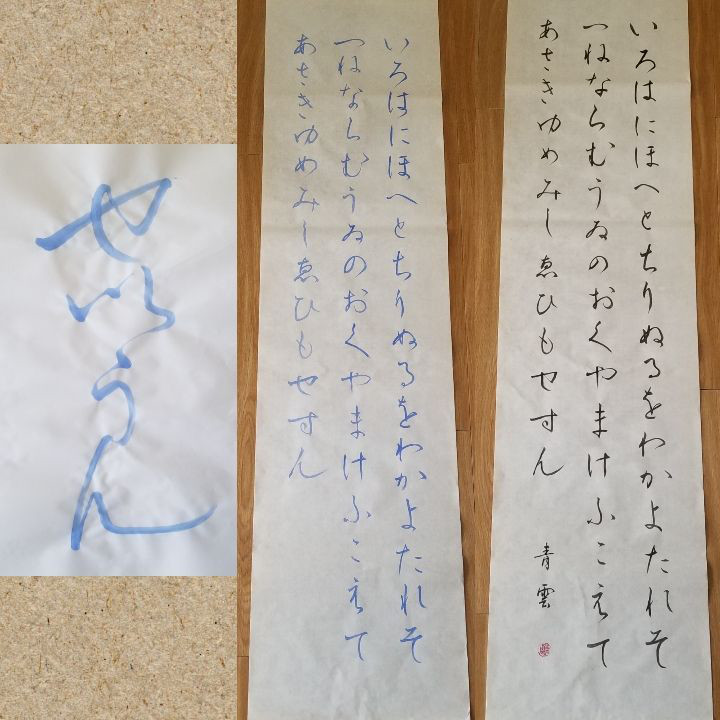 せいうん
いろはにほへとちりぬるをわかよたれそ
つねならむうゐのおくやまけふこえて
あさきゆめみし恵ひもせすん
いろはにほへとちりぬるをわかよたれそ
つねならむうゐのおくやまけふこえて
あさきゆめみし恵ひもせすん
青雲